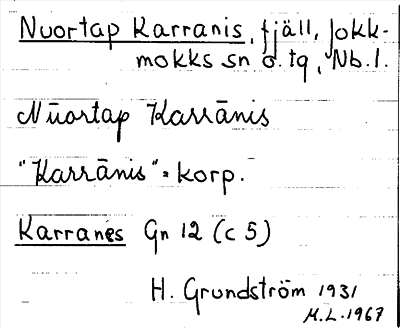 Nuortap Karranis, fjäll, Jokk-
mokks sn o. tg, Nb. l.
Nūortap Karrānis
"Karrānis" = korp.
Karranes Gn 12 (c 5)
H. Grundström 1931
M.L. 1967